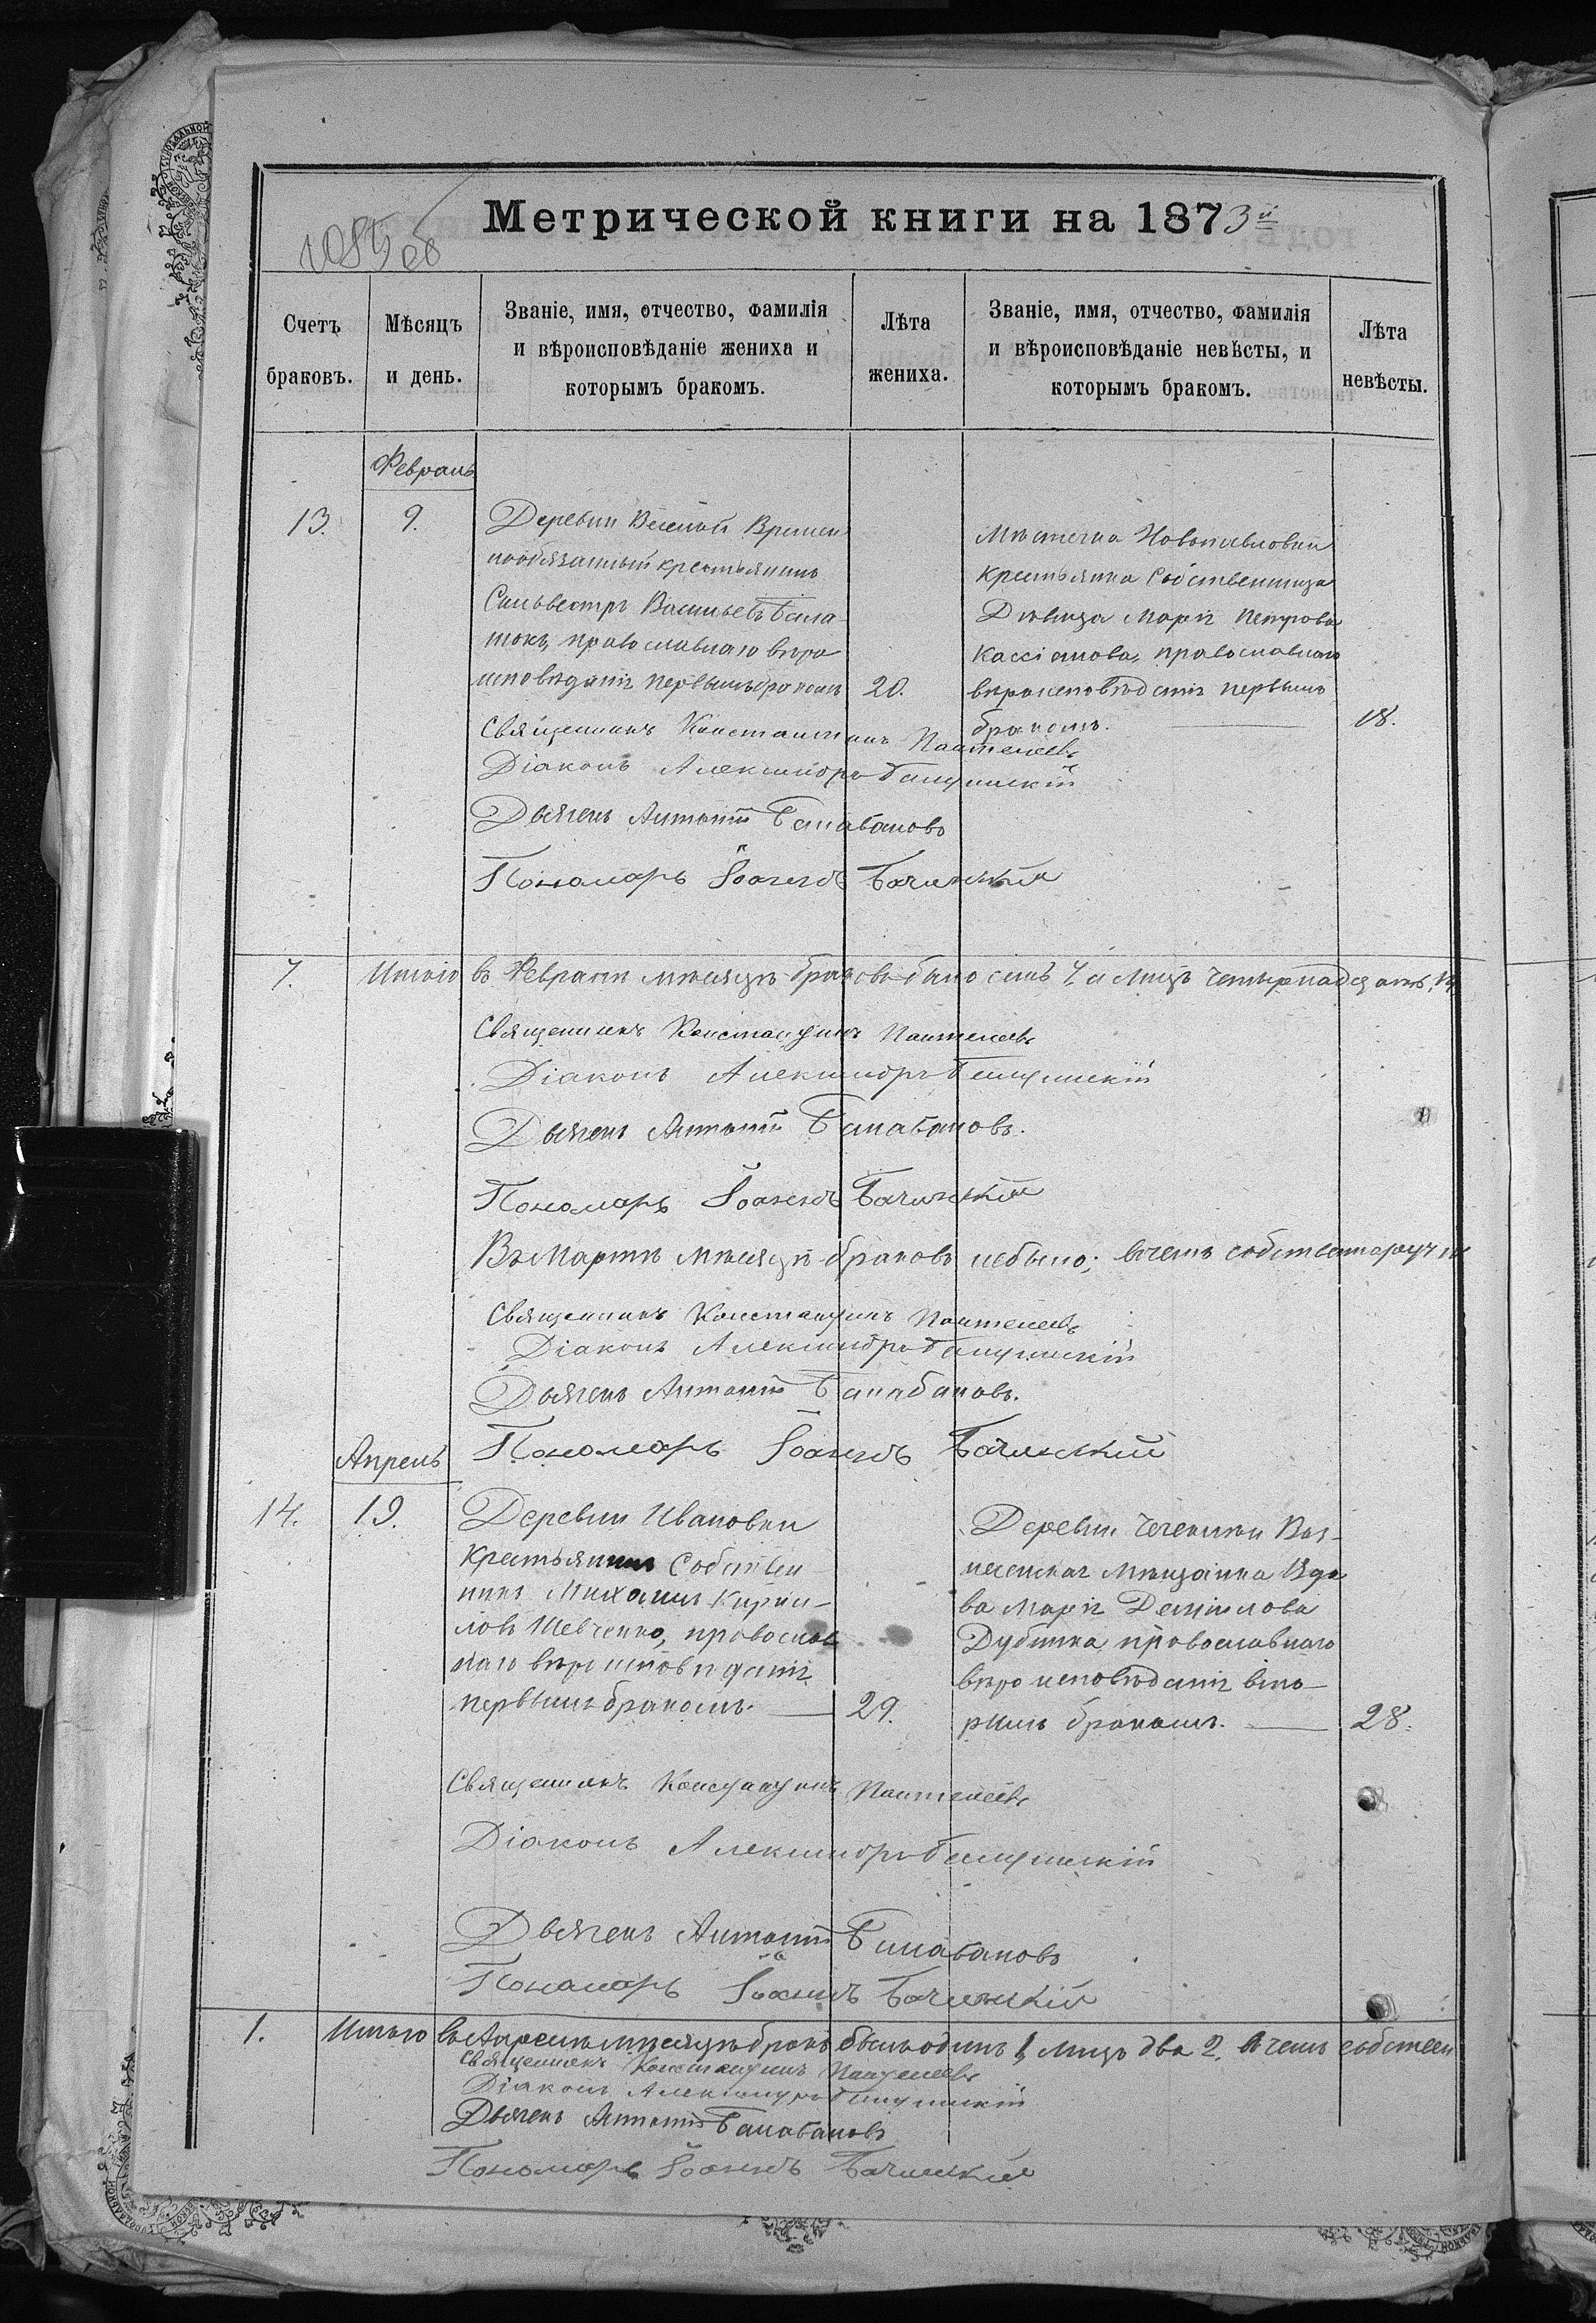 1085 об
Метрической книги на 1873й
Счетъ браковъ.
Мѣсяцъ и день.
Званіе, имя, отчество, фамилія и вѣроисповѣданіе жениха и которымъ бракомъ.
Лѣта жениха.
Званіе, имя, отчество, фамилія и вѣроисповѣданіе невѣсты, и которымъ бракомъ.
Лѣта невѣсты.
Февраль
13. 9.
Деревни Веселой Времен
нообязанный крестьянинъ
Сильвестръ Васильевъ
православнаго вѣро
исповѣданія первымъ бракомъ 20.
Мѣстечка Новопавловки
крестьянка Собственница
Дѣвица Марія Петрова
Кассіанова, православнаго
вѣроисповѣданія первымъ
бракомъ. 18.
Священникъ Константинъ Пантелеевъ
Діаконъ Александръ
Дьячекъ Антоній Балабановъ
Пономарь Іоаннъ Бачинскій
7. Итого въ Февралѣ мѣсяцѣ браковъ было семь 7, а лицъ четырнадцать, 14
Священникъ Константинъ Пантелеевъ
Діаконъ Александръ
Дьячекъ Антоній Балабановъ.
Пономарь Іоаннъ Бачинскій
Въ Мартѣ мѣсяцѣ браковъ небыло; вчемъ собственноручн
Священникъ Константинъ Пантелеевъ
Діаконъ Александръ
Дьячекъ Антоній Балабановъ.
Пономарь Іоаннъ Бачинскій
Апрель
14. 19.
Деревни Ивановки
Крестьянинъ Собствен
никъ Михаилъ Кирил-
ловъ Шевченко, православ
наго вѣроисповѣданія
первымъ бракомъ. 29.
Деревни Воз-
несенская мѣщанка Вдо
ва Марія Даніилова
Дубинка православнаго
вѣроисповѣданія вто-
рымъ бракомъ. 28.
Священникъ Константинъ Пантелеевъ
Діаконъ Александръ
Дьячекъ Антоній Балабановъ
Пономарь Іоаннъ Бачинскій
1. Итого въ Апрелѣ мѣсяцѣ бракъ былъ одинъ 1, лицъ два 2. Вчемъ собствен
Священникъ Константинъ Пантелеевъ
Діаконъ Александръ
Дьячекъ Антоній Балабановъ
Пономарь Іоаннъ Бачинскій